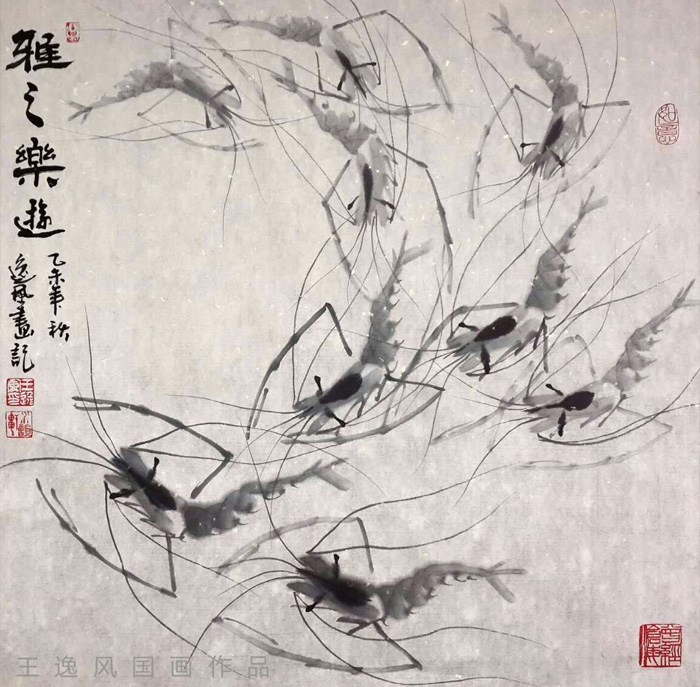 雅之樂遊
乙未年秋
逸風畫記
如意
王逸风国画作品